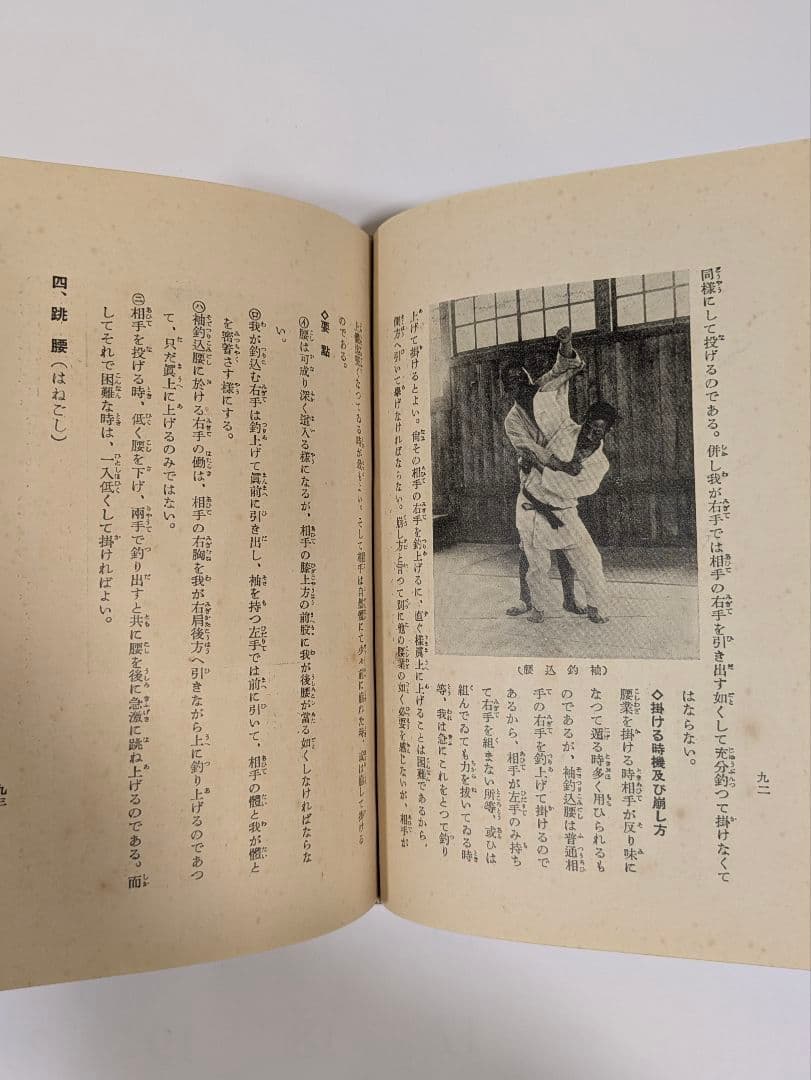 九二
同様にして投げるのである。併し我が右手では相手の右手を引き出す如くして充分釣つて掛けなくて
はならない。
◇掛ける時機及び崩し方
腰業を掛ける時相手が反り味に
なつて遁る時多く用ひられるも
のであるが、袖釣込腰は普通相
手の右手を釣上げて掛けるので
あるから、相手が左手のみ持ち
て右手を組まない所等、或ひは
組んでゐても力を抜いてゐる時
等、我は急にこれをとつて釣り
(腰込釣袖)
上げて掛けるとよい。尚その相手の右手を釣上げるに、直ぐ様眞上に上げることは困難であるから、
側方へ引いて擧げなければならない。崩し方と言つて別に他の腰業の如く必要を感じないが、相手が
のである。
◇要點
㋑腰は可成り深く這入る様になるが、相手の膝上方の前股に我が後腰が當る如くしなければならな
い。
㋺我が釣込む右手は釣上げて眞前に引き出し、袖を持つ左手では前に引いて、相手の體と我が體と
を密着さす様にする。
㋩袖釣込腰に於ける右手の働は、相手の右胸を我が右肩後方へ引きながら上に釣り上げるのであつ
て、只だ眞上に上げるのみではない。
㋥相手を投げる時、低く腰を下げ、兩手で釣り出すと共に腰を後に急激に跳ね上げるのである。而
してそれで困難な時は、一入低くして掛ければよい。
四、跳腰(はねごし)
九三